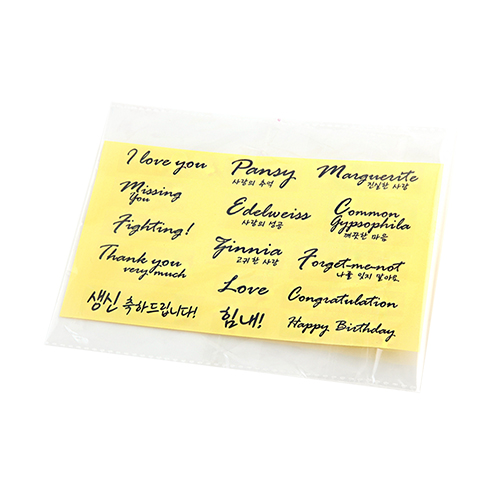 I love you
Missing
You
Fighting!
Thank you
very much
생신 축하드립니다!
Pansy
사랑의 추억
Edelweiss
사랑의 성공
Zinnia
고귀한 사랑
Love
힘내!
Marguerite
진실한 사랑
Common
Gypsophila
깨끗한 마음
Forget-me-not
나를 잊지 말아요
Congratulation
Happy Birthday